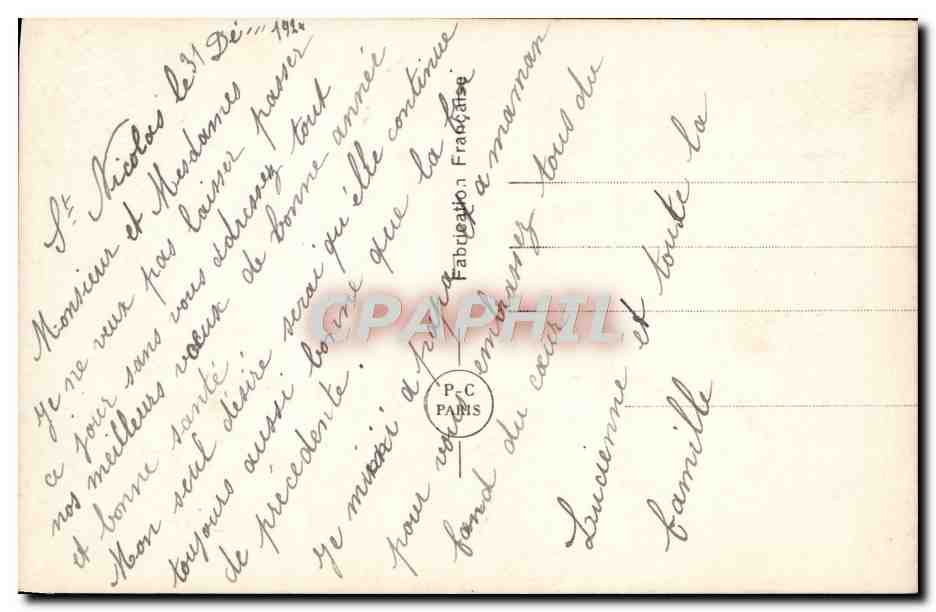 St Nicolas le 31 Dé 1924
Monsieur et Mesdames
Je ne veux pas laisser passer
ce jour sans vous adressez tout
nos meilleurs voeux de bonne année
et bonne santé
Mon seul désire serai qu'elle continue
toujours aussi bonne que la
de précédente.
Je à papa et a maman
pour vous embrassez tous du
fond du cœur
Lucienne et toute la
famille
Fabrication Française
P-C
PARIS
CPAPHIL